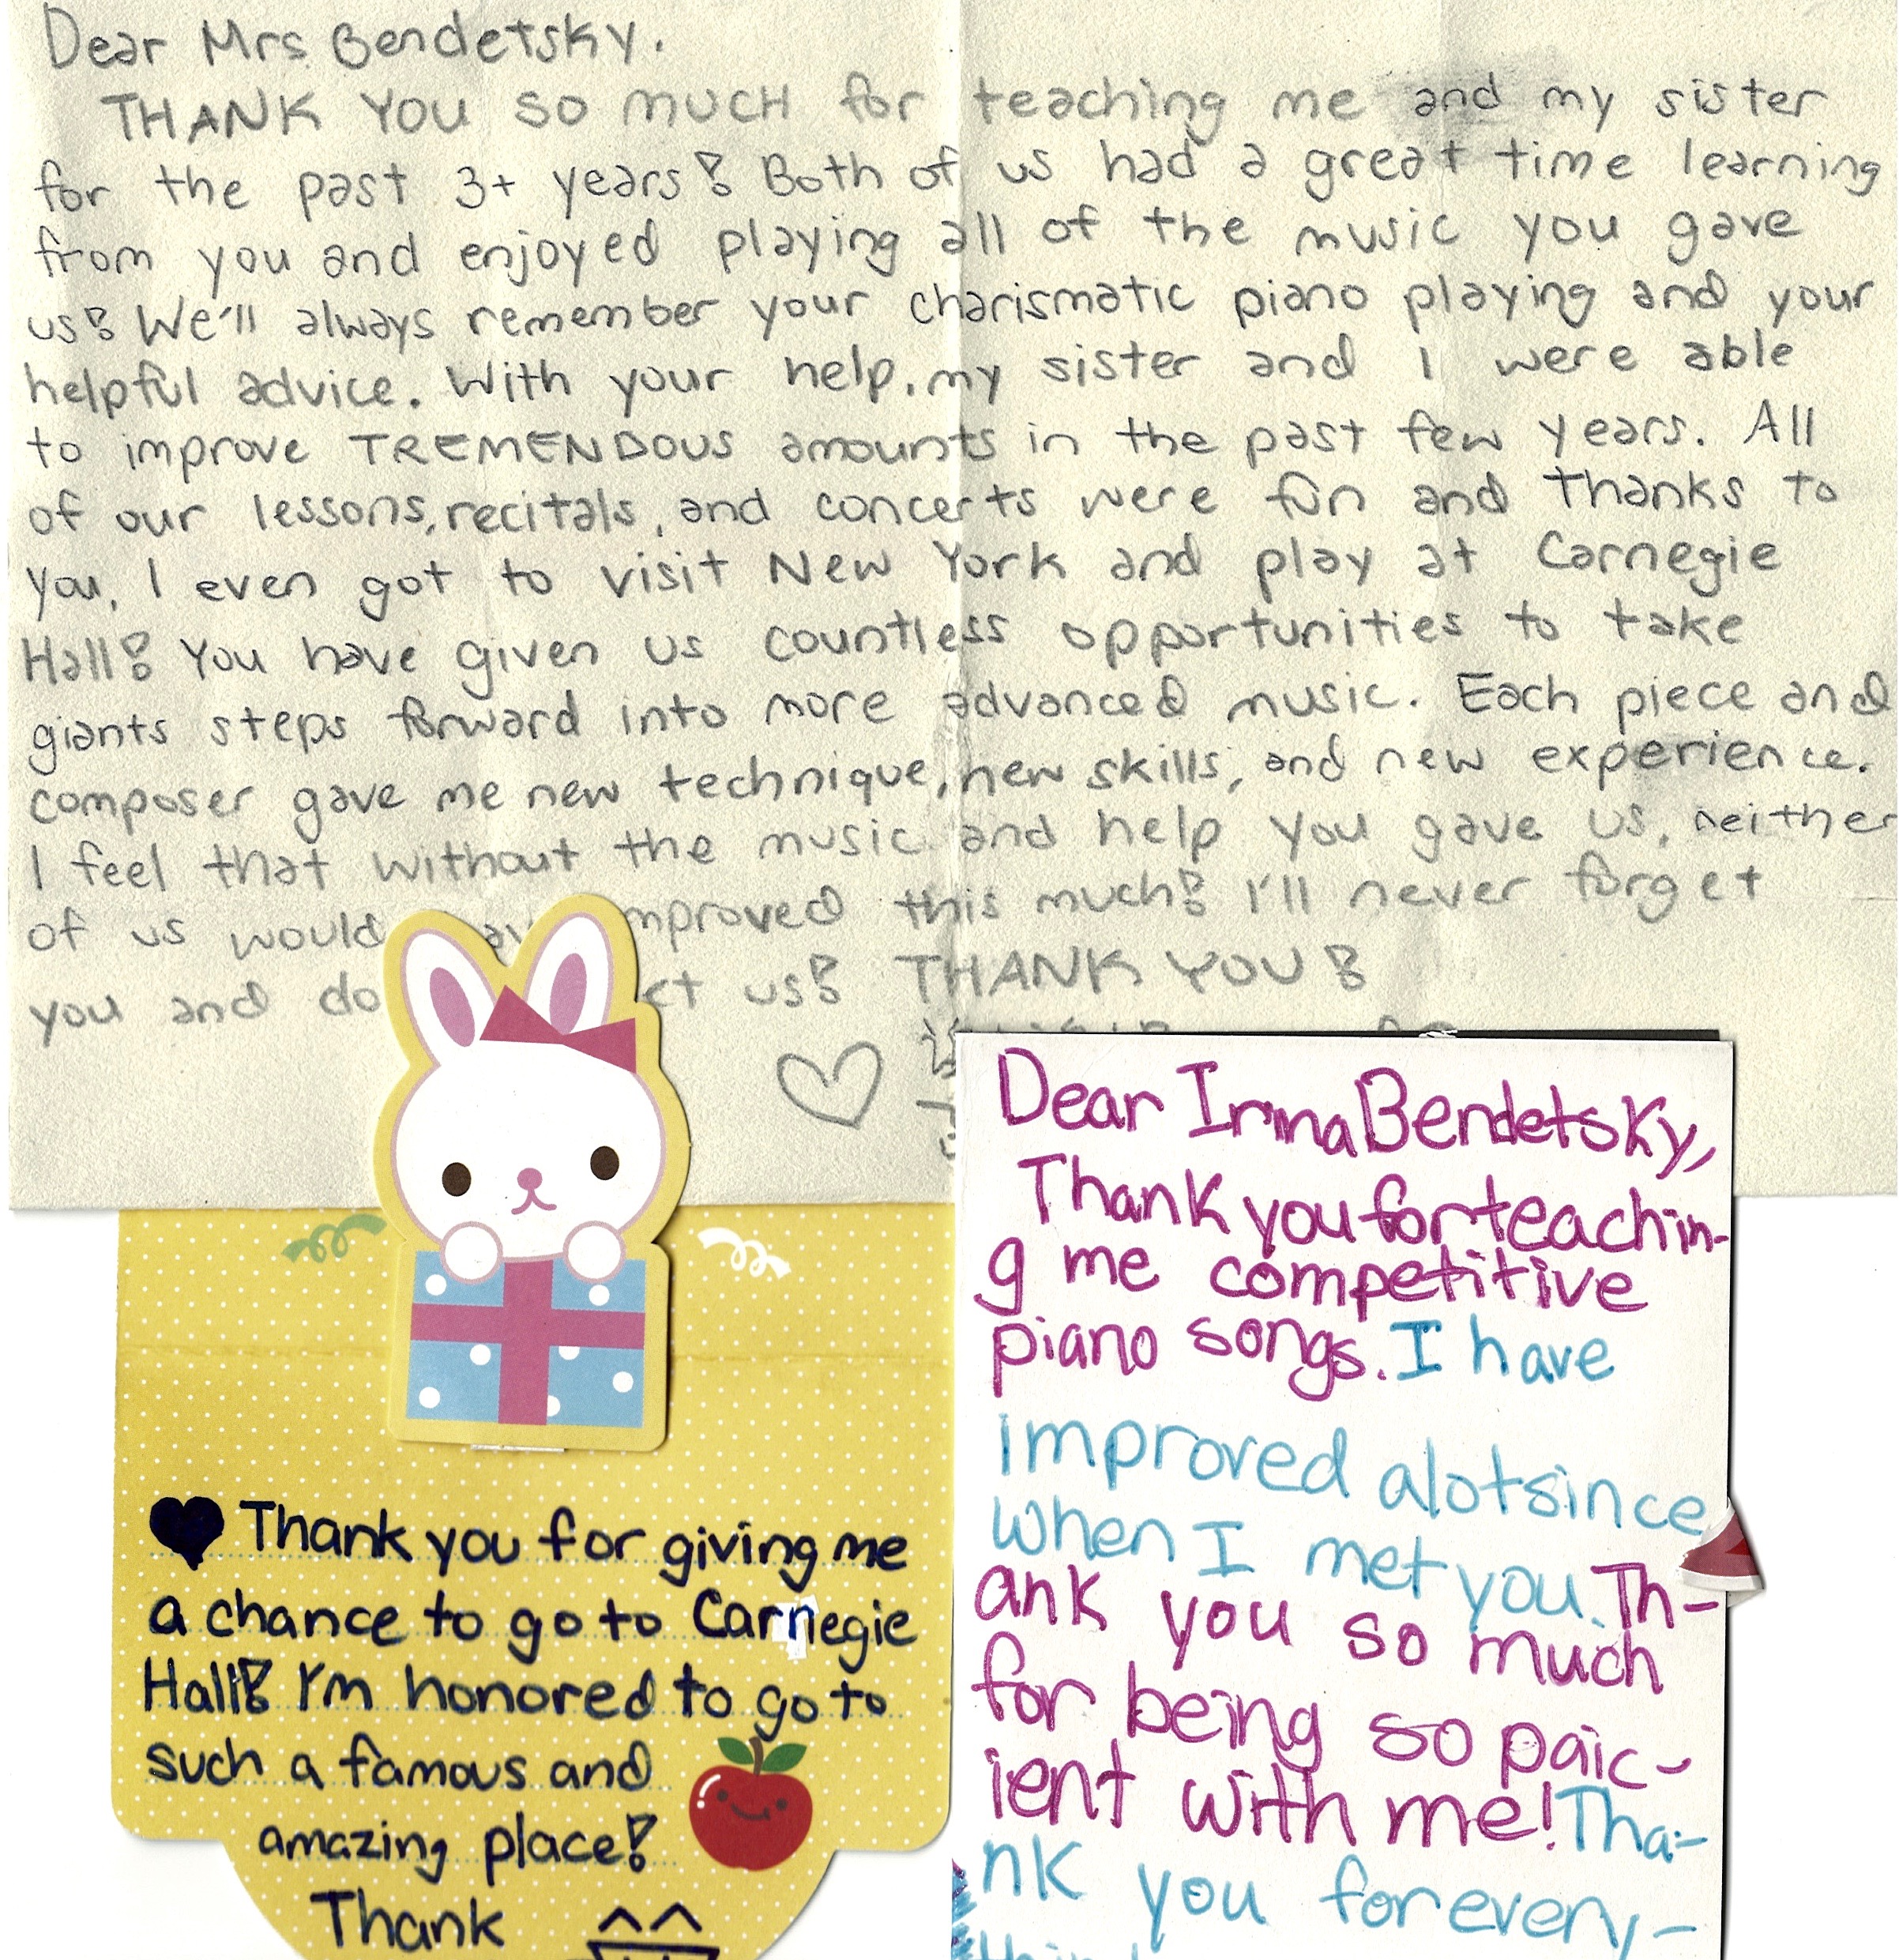 Dear Mrs Bendetsky.
THANK YOU SO MUCH for teaching me and my sister
for the past 3+ years! Both of us had a great time learning
from you and enjoyed playing all of the music you gave
us! We'll always remember your charismatic piano playing and your
helpful advice. With your help, my sister and I were able
to improve TREMENDOUS amounts in the past few years. All
of our lessons, recitals, and concerts were fun and thanks to
you, I even got to visit New York and play at Carnegie
Hall! You have given us countless opportunities to take
giants steps forward into more advanced music. Each piece and
composer gave me new technique, new skills, and new experience.
I feel that without the music and help you gave us, neither
of us would improved this much! I'll never forget
you and do us! THANK YOU!
Thank you for giving me
a chance to go to Carnegie
Hall! I'm honored to go to
such a famous and
amazing place!
Thank
Dear Irina Bendetsky,
Thank you for teachin-
g me competitive
piano songs. I have
improved alot since
when I met you. Th-
ank you so much
for being so paic-
ient with me! Tha-
nk you for every-